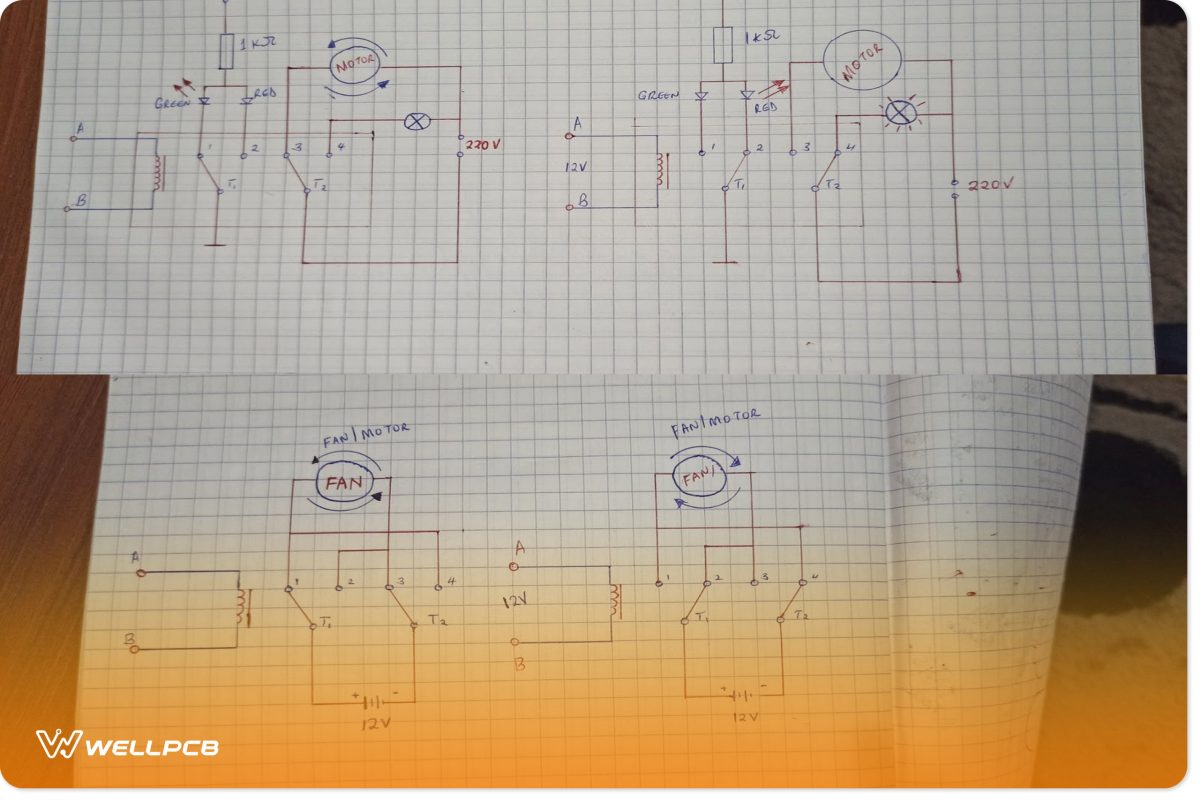 1KΩ
MOTOR
GREEN
RED
A
1
2
3
4
220V
T1
T2
B
1KΩ
MOTOR
GREEN
RED
A
12V
1
2
3
4
T1
T2
220V
B
FAN/MOTOR
FAN
A
1
2
3
4
T1
T2
B
+
-
12V
FAN/MOTOR
FAN/
A
12V
1
2
3
4
T1
T2
B
+
-
12V
WELLPCB